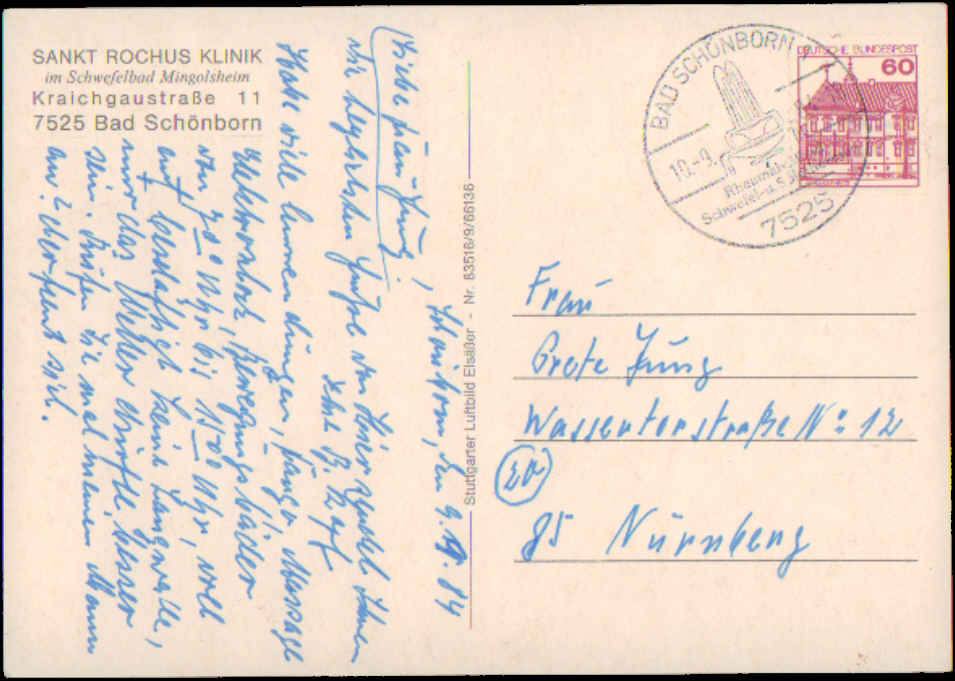 SANKT ROCHUS KLINIK
im Schwefelbad Mingolsheim
Kraichgaustraße 11
7525 Bad Schönborn
Schönborn, den 9. 84
Liebe Frau Jung!
Die herzlichsten Grüße von hier sendet Ihnen
Ihre B. Karf
Habe viele Anwendungen, Fango, Massage
Elektrobad, Bewegungsbäder
von 7°° Uhr bis 15°° Uhr, voll
auf beschäftigt keine Langweile,
nur das Wetter dürfte besser
sein. Rufen Sie mal meinen Mann
an? der freut sich.
Stuttgarter Luftbild Elsäßer - Nr. 63516/9/66136
BAD SCHÖNBORN
10.-9.
Rheuma
Schwefel-u.
7525
DEUTSCHE BUNDESPOST
60
Frau
Grete Jung
Wassertorstraße No 12
20
85 Nürnberg